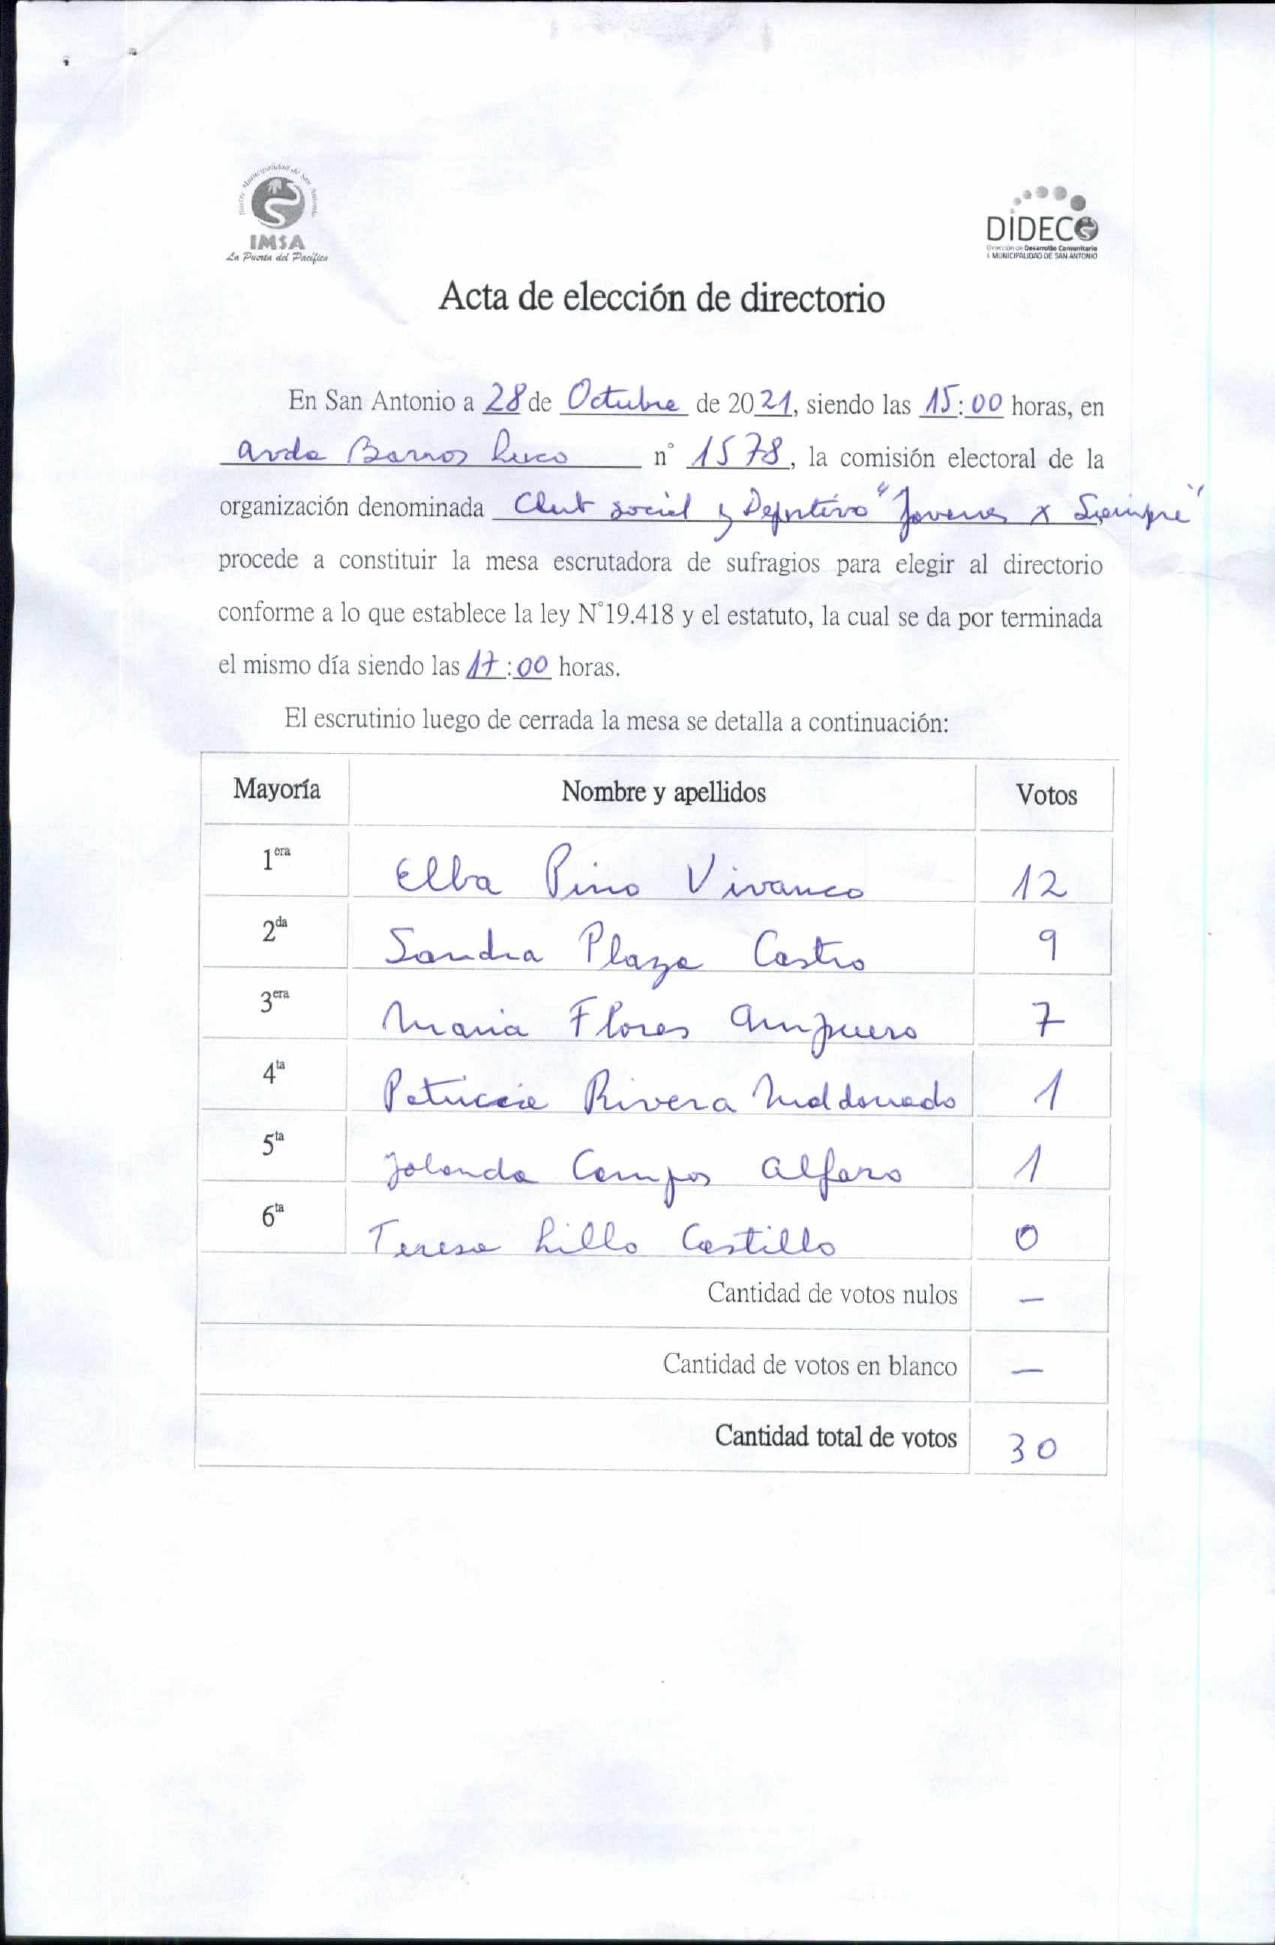 Ilustre Municipalidad de San Antonio
IMSA
La Puerta del Pacífico
DIDECO
Dirección de Desarrollo Comunitario
I. MUNICIPALIDAD DE SAN ANTONIO
Acta de elección de directorio
En San Antonio a 28 de Octubre de 2021, siendo las 15:00 horas, en
Avda Barros Luco n° 1578, la comisión electoral de la
organización denominada Club social y Deportivo "Jovenes x Siempre"
procede a constituir la mesa escrutadora de sufragios para elegir al directorio
conforme a lo que establece la ley N°19.418 y el estatuto, la cual se da por terminada
el mismo día siendo las 17:00 horas.
El escrutinio luego de cerrada la mesa se detalla a continuación:
Mayoría Nombre y apellidos Votos
1era Elba Pino Vivanco 12
2da Sandra Plaza Castro 9
3era Maria Flores Ampuero 7
4ta Patricia Rivera Maldonado 1
5ta Jolanda Campos Alfaro 1
6ta Teresa Lillo Castillo 0
Cantidad de votos nulos —
Cantidad de votos en blanco —
Cantidad total de votos 30